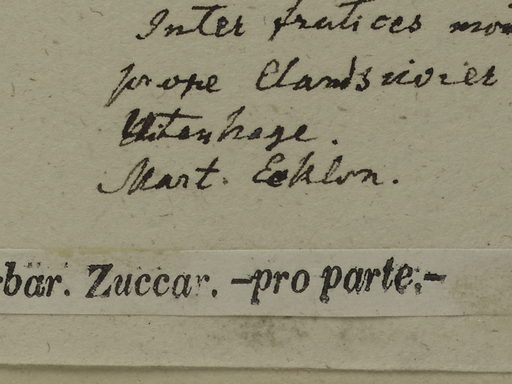 Inter frutices
prope Elandsrivier
Uitenhage.
Mart. Ecklon.
rbar. Zuccar. –pro parte.–